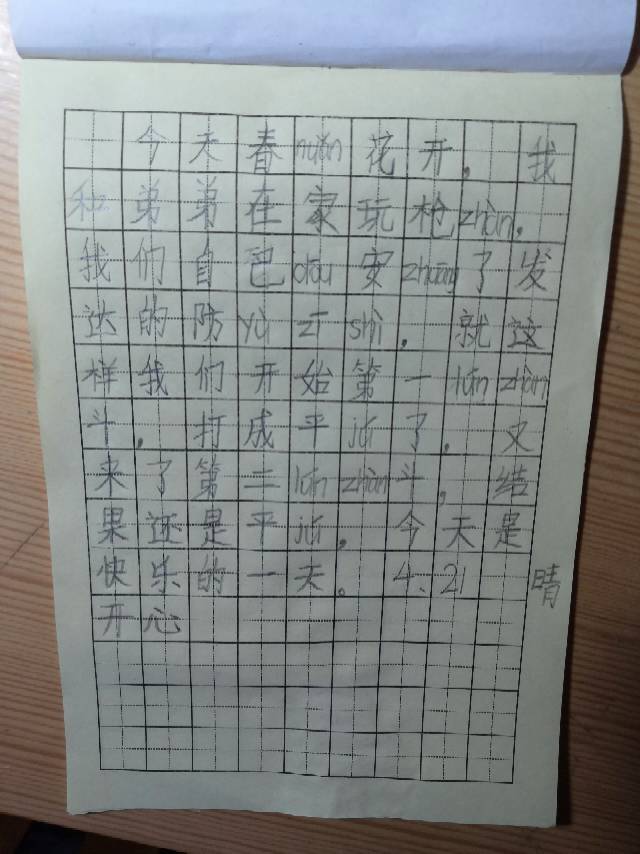 今天春nuǎn花开，我
和弟弟在家玩枪zhàn。
我们自己dōu安zhuāng了发
达的防yù zī shì。就这
样我们开始第一lún zhàn
斗。打成平jú了。又
来了第二lún zhàn斗，结
果还是平jú。今天是
快乐的一天。4、21 晴
开心